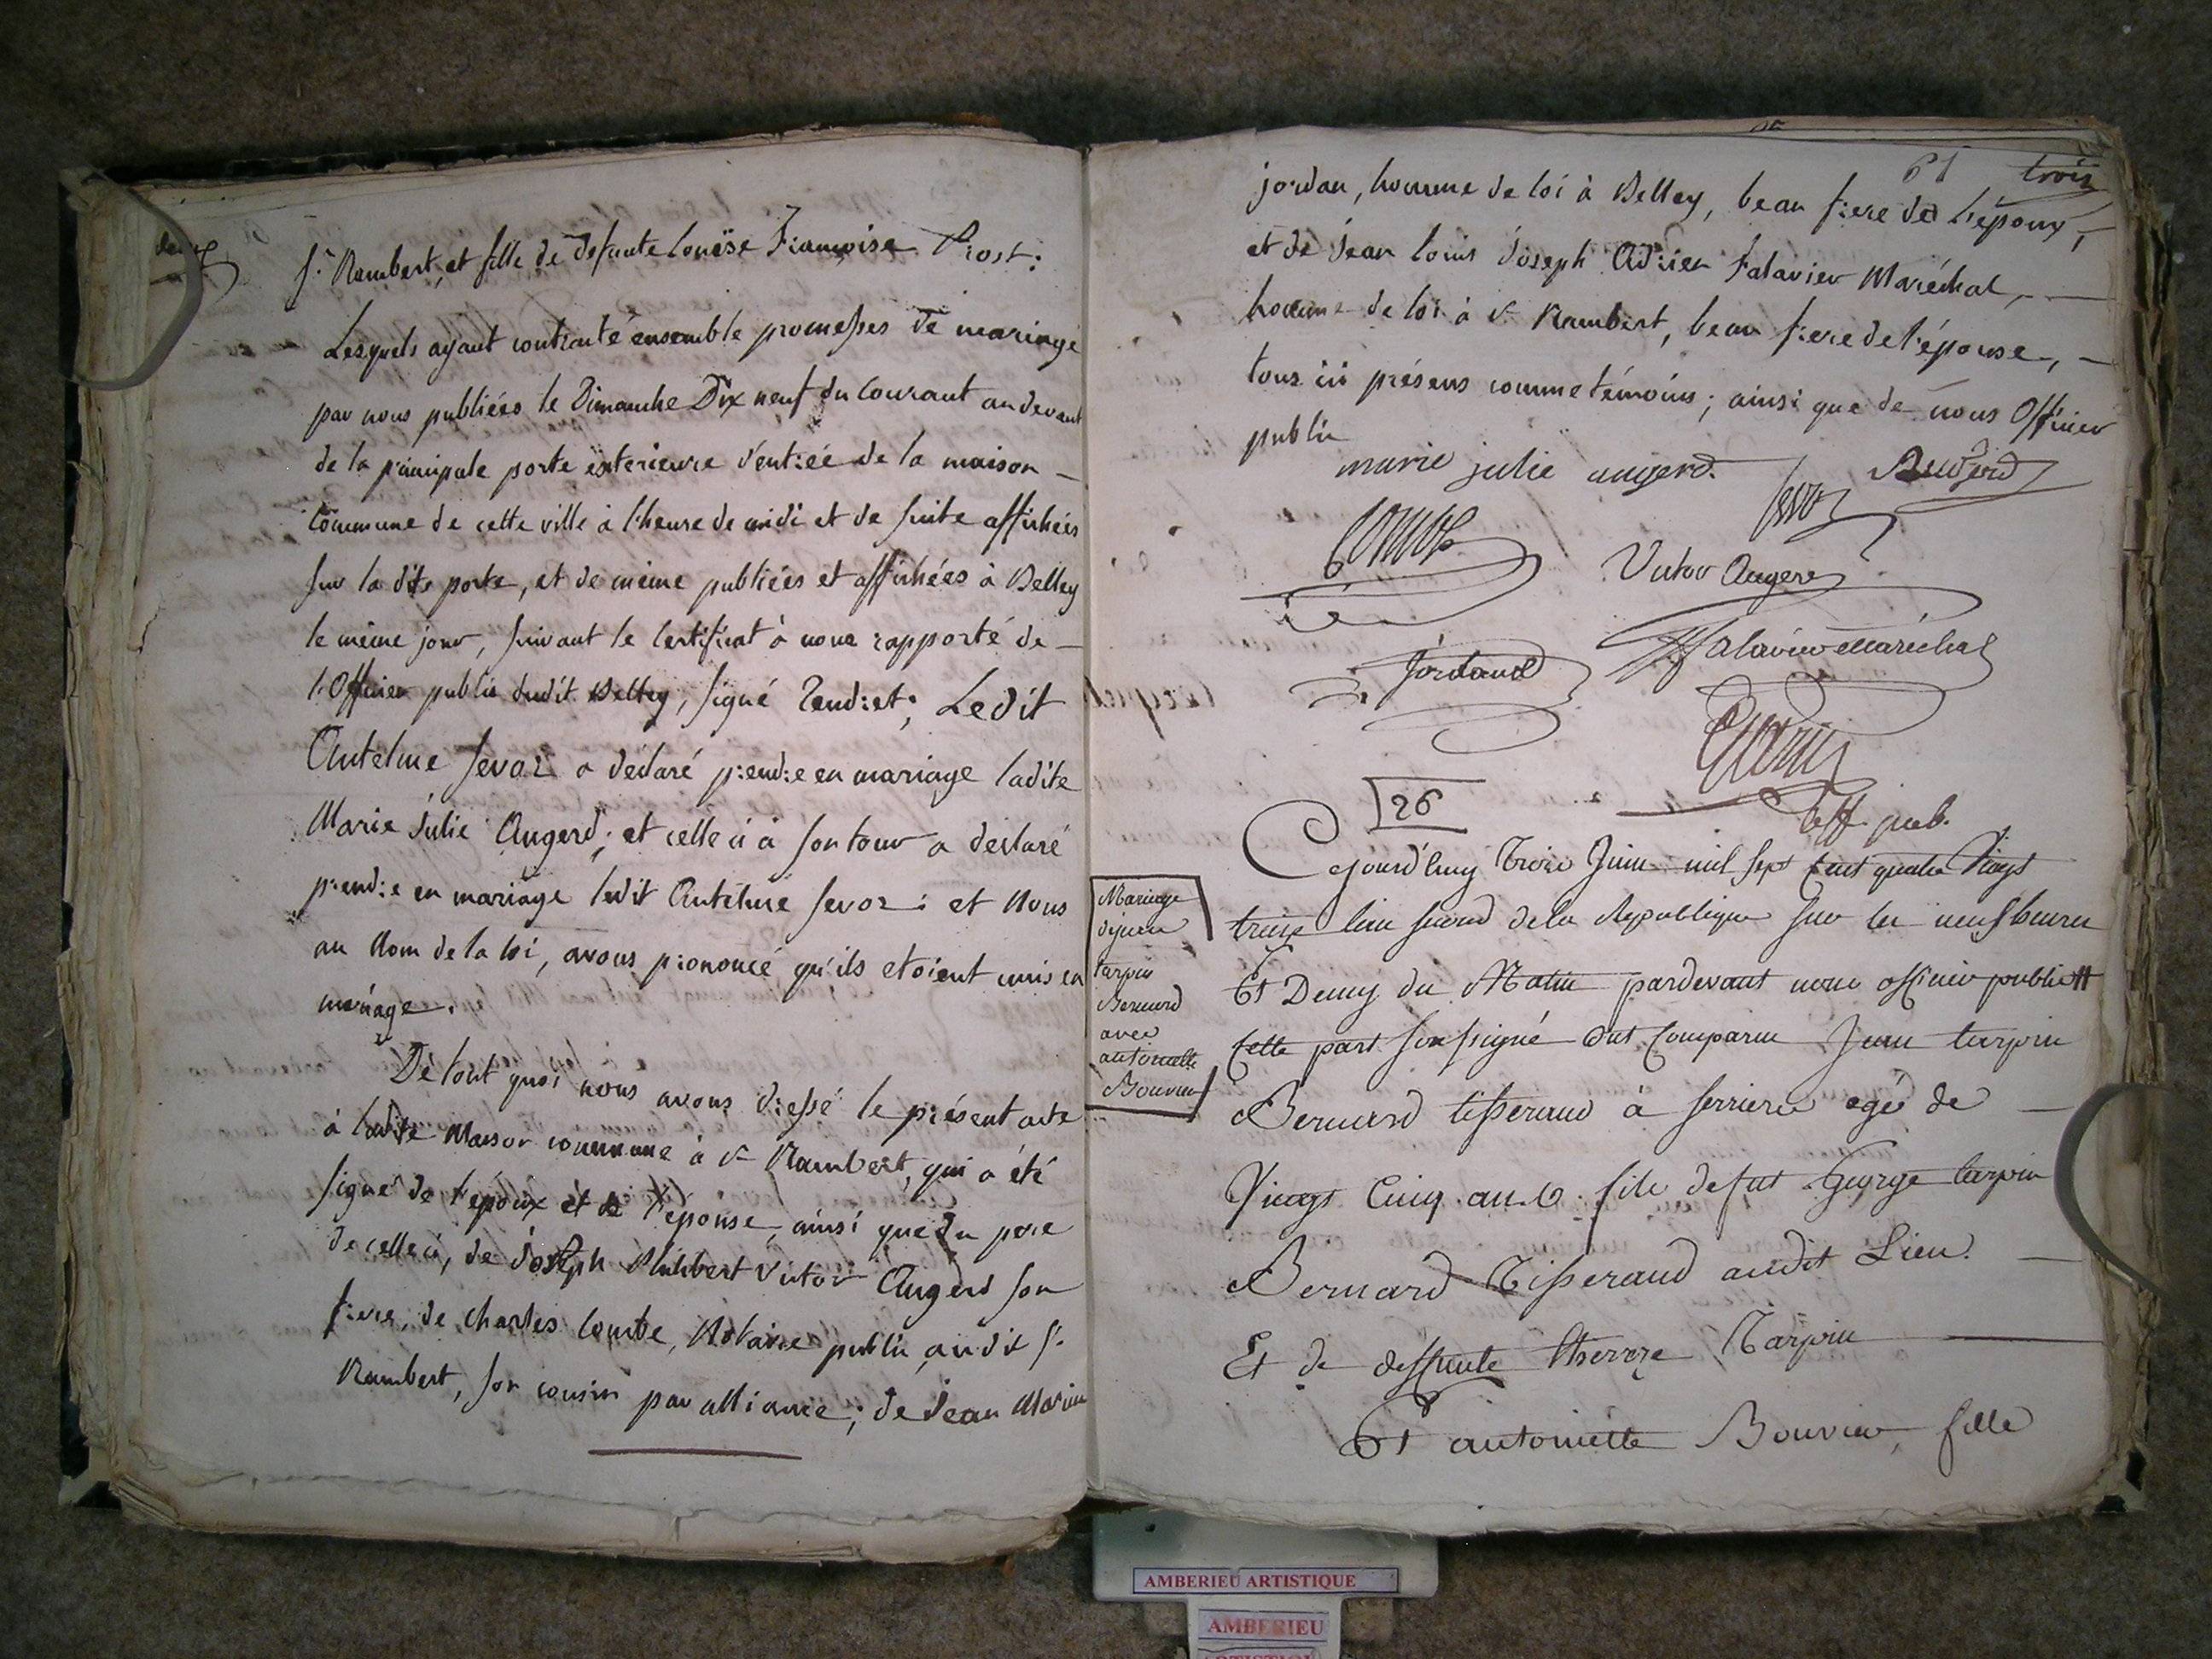 deux
St Rambert, et fille de defunte Louïse Françoise Prost :
Lesquels ayant contracté ensemble promesses de mariage
par nous publiées le Dimanche Dix neuf du Courant au devant
de la principale porte exterieure d'entrée de la maison
Commune de cette ville à l'heure de midi et de suite affichées
sur la dite porte, et de même publiées et affichées à Belley
le même jour, suivant le Certificat à nous rapporté de
l'Officier public dudit Belley, signé Tendret; Ledit
Antelme Sevoz a déclaré prendre en mariage ladite
Marie Julie Angerd; et celle ci à son tour a déclaré
prendre en mariage ledit Antelme Sevoz : et Nous
au Nom de la loi, avons prononcé qu'ils etoient unis en
mariage.
De tout quoi nous avons dressé le présent acte
à ladite Maison commune à St Rambert, qui a été
signé de l'époux et de l'épouse, ainsi que du pere
de celle ci, de Joseph Philibert Victor Augerd son
frere, de Charles Combe, Notaire public audit St
Rambert, son cousin par alliance; de Jean Marie
61 trois
jordan, homme de loi à Belley, beau frere de l'époux,
et de Jean Louis Joseph Adrien Falavier Maréchal,
homme de loi à St Rambert, beau frere de l'épouse,
tous ici présens comme témoins; ainsi que de nous Officier
public
marie julie augerd. Sevoz Augerd
Combe Victor Augerd
Jordan Falavier Maréchal
off. pub.
26
Cejourd'huy Troix Juin mil sept cent quatre Vingt
treize l'an second de la Republique sur les neuf heures
Et Demy du Matin pardevant nous officier public
Cette part soussigné ont Comparu Jean tarpin
Bernard tisserand à serrieres agé de
Vingt Cinq ans fils de fut George tarpin
Bernard Tisserand audit Lieu.
Et de deffunte therrze Tarpin
Et antoinette Bouvier, fille
Mariage
de jean
tarpin
Bernard
avec
antoinette
Bouvier
AMBERIEU ARTISTIQUE
AMBERIEU
ARTISTIQUE